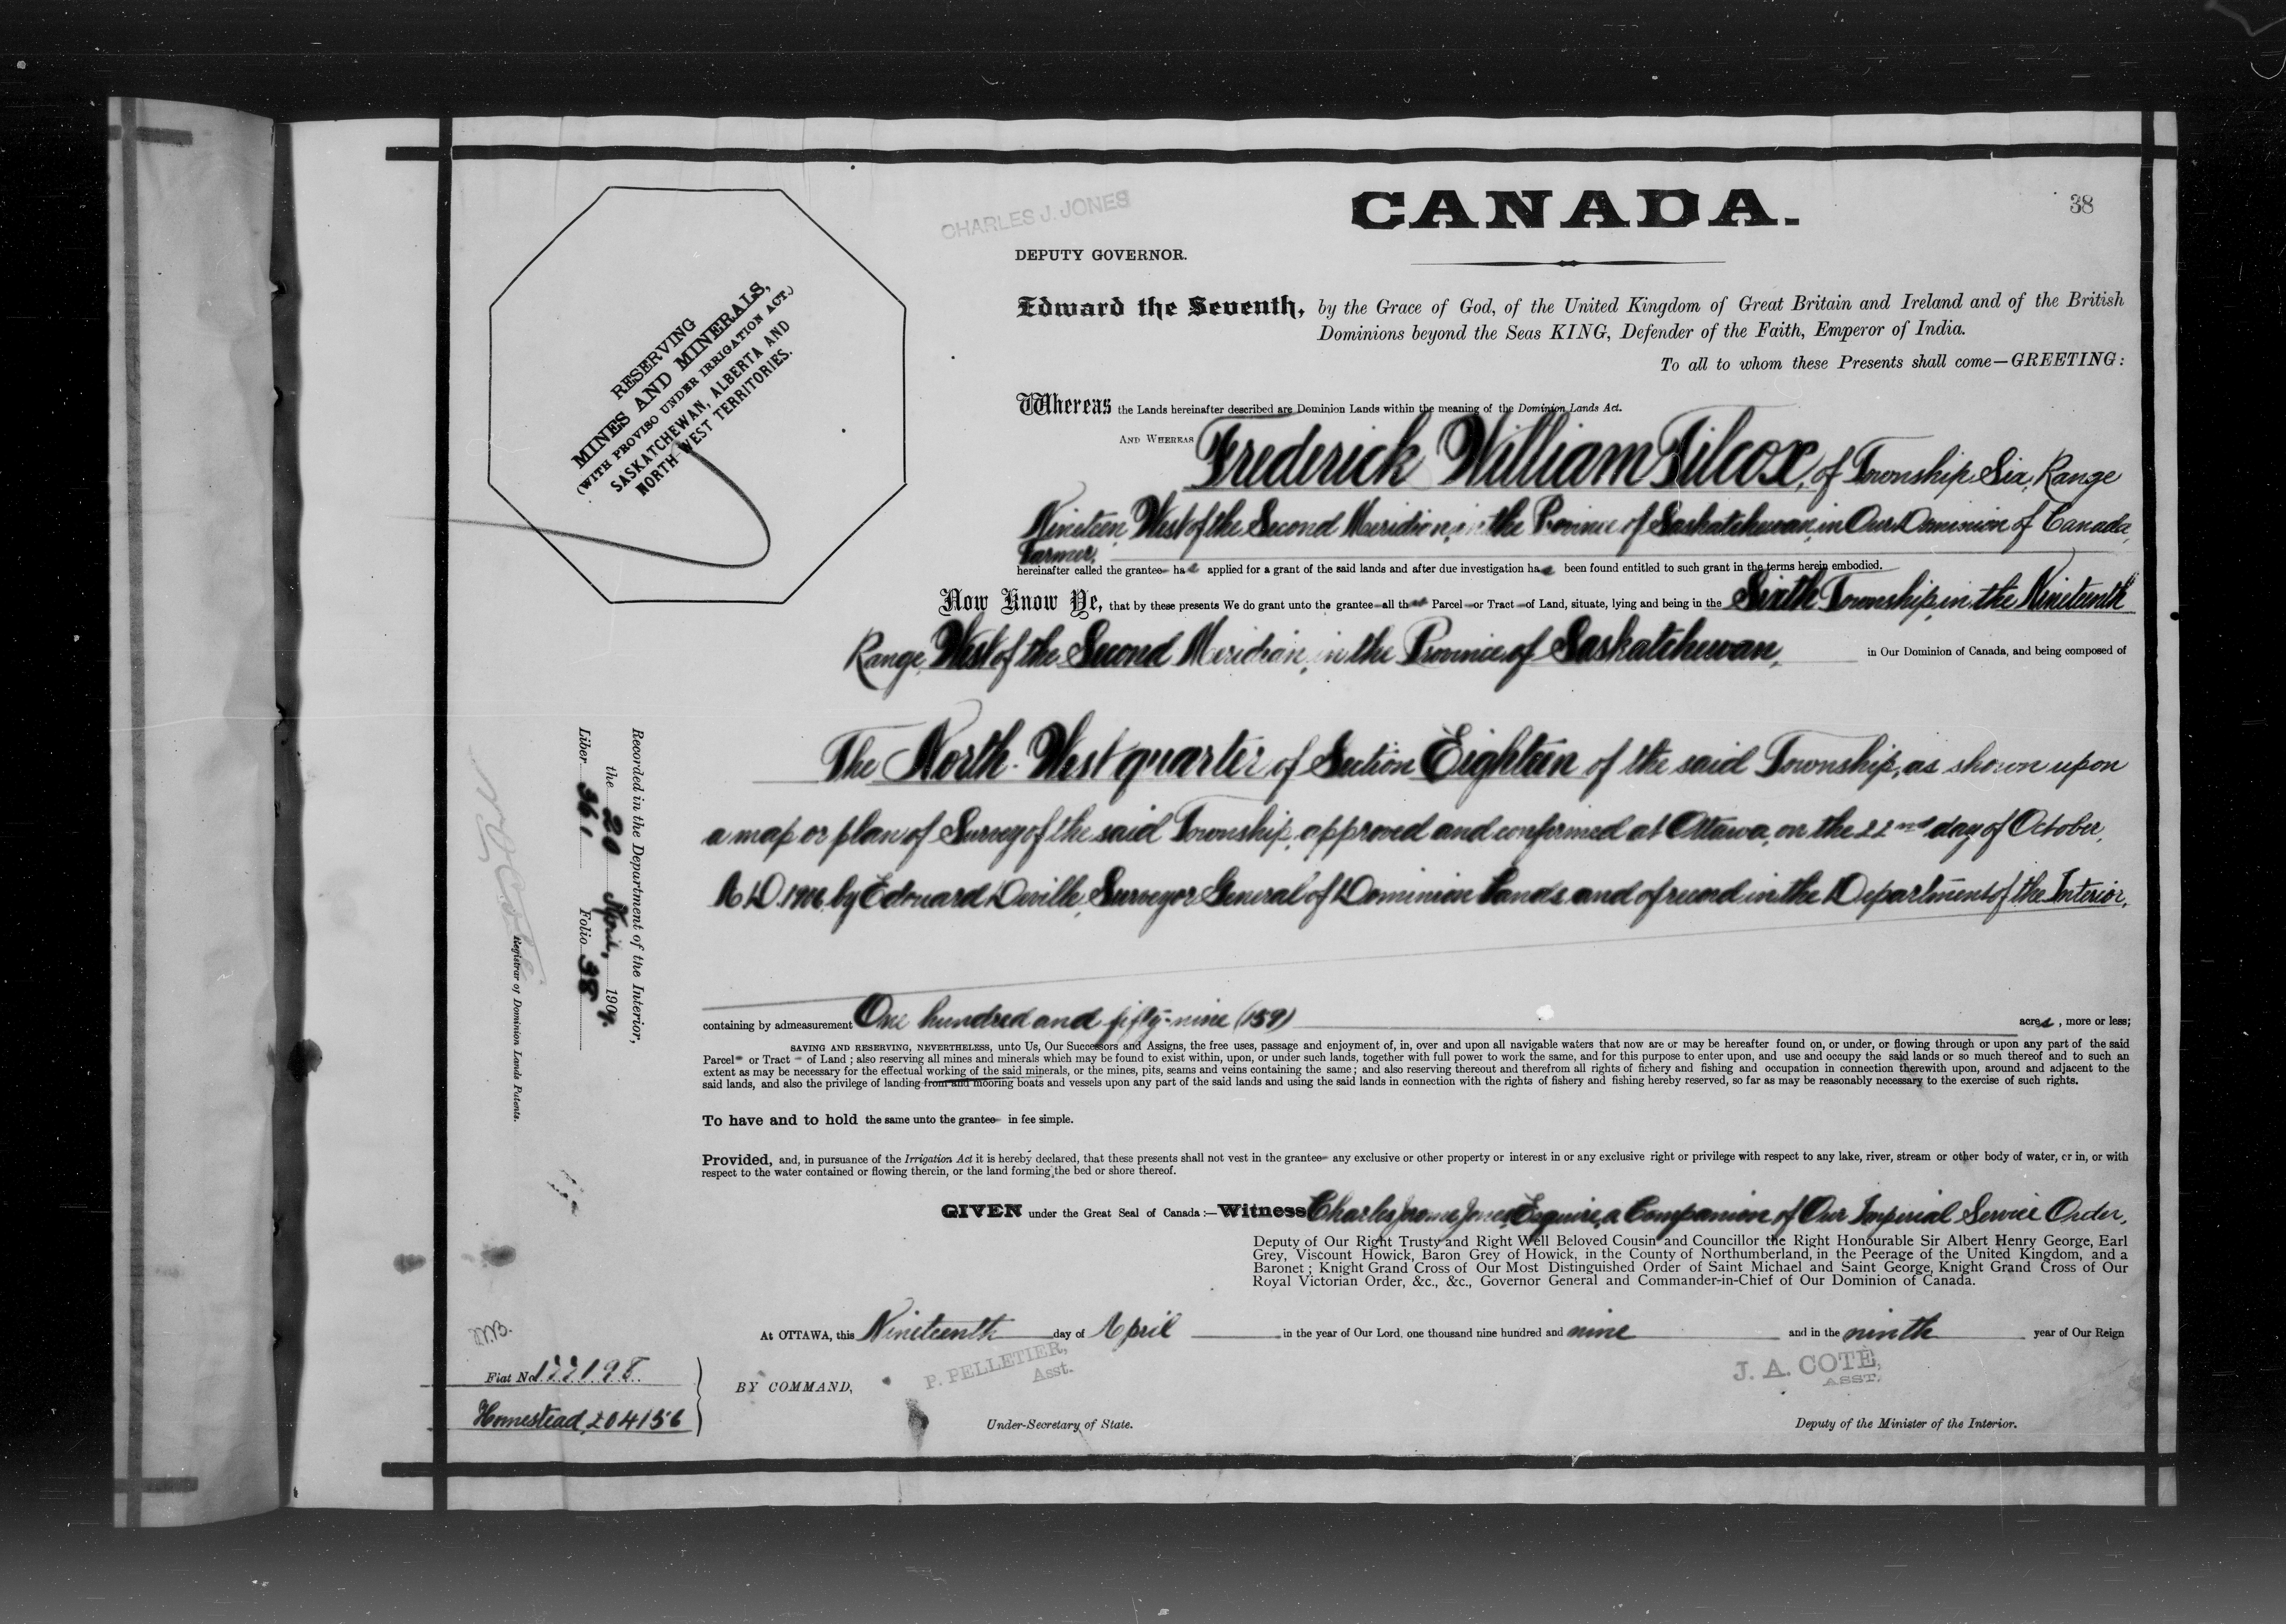 38
CHARLES J. JONES
CANADA.
DEPUTY GOVERNOR.
RESERVING
MINES AND MINERALS,
(WITH PROVISO UNDER IRRIGATION ACT.)
SASKATCHEWAN, ALBERTA AND
NORTH-WEST TERRITORIES.
Edward the Seventh, by the Grace of God, of the United Kingdom of Great Britain and Ireland and of the British
Dominions beyond the Seas KING, Defender of the Faith, Emperor of India.
To all to whom these Presents shall come—GREETING:
Whereas the Lands hereinafter described are Dominion Lands within the meaning of the Dominion Lands Act.
AND WHEREAS Frederick William Tilcox, of Township Six, Range
Nineteen, West of the Second Meridian, in the Province of Saskatchewan, in Our Dominion of Canada,
Farmer,
hereinafter called the grantee has applied for a grant of the said lands and after due investigation has been found entitled to such grant in the terms herein embodied.
Now Know Ye, that by these presents We do grant unto the grantee all that Parcel or Tract of Land, situate, lying and being in the Sixth Township, in the Nineteenth
Range, West of the Second Meridian, in the Province of Saskatchewan, in Our Dominion of Canada, and being composed of
The North-West quarter of Section Eighteen of the said Township, as shown upon
a map or plan of Survey of the said Township, approved and confirmed at Ottawa, on the 22nd day of October,
A.D. 1906, by Edouard Deville, Surveyor General of Dominion Lands and of record in the Department of the Interior,
containing by admeasurement One hundred and fifty-nine (159) acres, more or less;
SAVING AND RESERVING, NEVERTHELESS, unto Us, Our Successors and Assigns, the free uses, passage and enjoyment of, in, over and upon all navigable waters that now are or may be hereafter found on, or under, or flowing through or upon any part of the said
Parcel or Tract of Land; also reserving all mines and minerals which may be found to exist within, upon, or under such lands, together with full power to work the same, and for this purpose to enter upon, and use and occupy the said lands or so much thereof and to such an
extent as may be necessary for the effectual working of the said minerals, or the mines, pits, seams and veins containing the same; and also reserving thereout and therefrom all rights of fishery and fishing and occupation in connection therewith upon, around and adjacent to the
said lands, and also the privilege of landing from and mooring boats and vessels upon any part of the said lands and using the said lands in connection with the rights of fishery and fishing hereby reserved, so far as may be reasonably necessary to the exercise of such rights.
To have and to hold the same unto the grantee in fee simple.
Provided, and, in pursuance of the Irrigation Act it is hereby declared, that these presents shall not vest in the grantee any exclusive or other property or interest in or any exclusive right or privilege with respect to any lake, river, stream or other body of water, or in, or with
respect to the water contained or flowing therein, or the land forming the bed or shore thereof.
GIVEN under the Great Seal of Canada:—Witness Charles Jerome Jones, Esquire, a Companion of Our Imperial Service Order,
Deputy of Our Right Trusty and Right Well Beloved Cousin and Councillor the Right Honourable Sir Albert Henry George, Earl
Grey, Viscount Howick, Baron Grey of Howick, in the County of Northumberland, in the Peerage of the United Kingdom, and a
Baronet; Knight Grand Cross of Our Most Distinguished Order of Saint Michael and Saint George, Knight Grand Cross of Our
Royal Victorian Order, &c., &c., Governor General and Commander-in-Chief of Our Dominion of Canada.
At OTTAWA, this Nineteenth day of April in the year of Our Lord, one thousand nine hundred and nine and in the ninth year of Our Reign
BY COMMAND,
P. PELLETIER,
Asst.
Under-Secretary of State.
J. A. COTÉ,
ASST.
Deputy of the Minister of the Interior.
Recorded in the Department of the Interior,
the 20 April, 1909.
Liber 361 Folio 38
Registrar of Dominion Lands Patents.
Fiat No 177198
Homestead, 204156